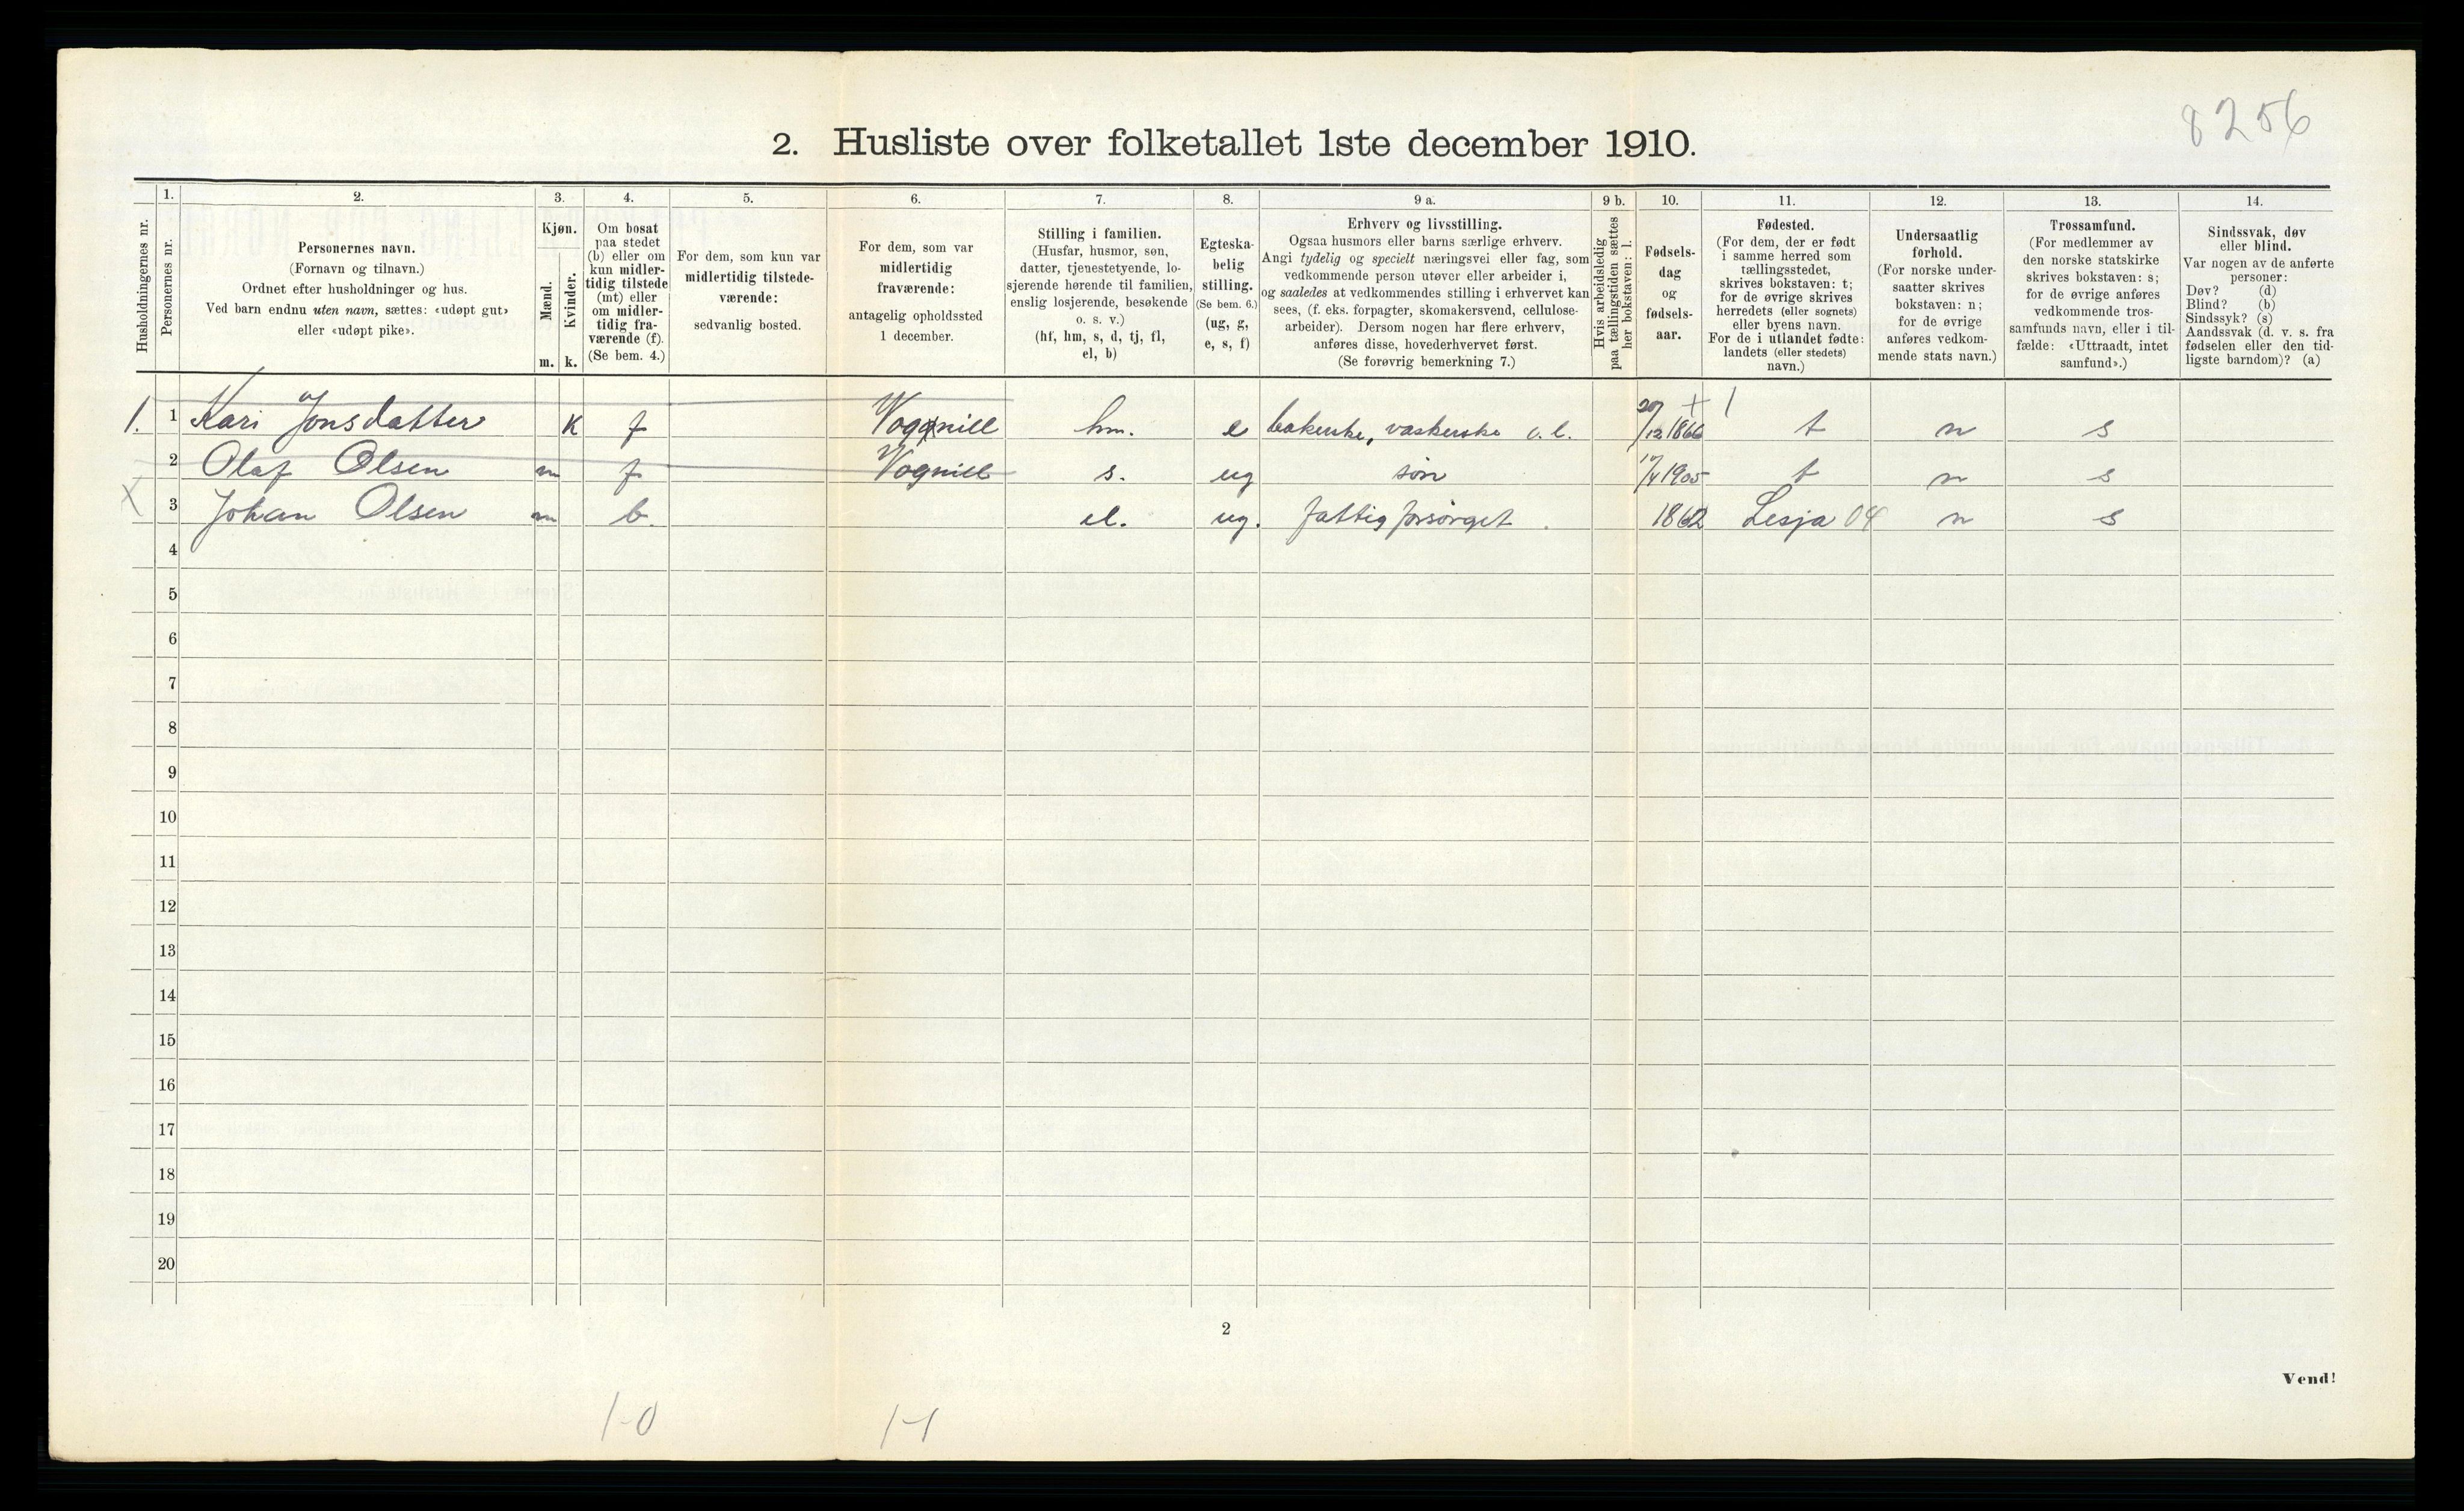 8256
2. Husliste over folketallet 1ste december 1910.
Husholdningernes nr.
1.
Personernes nr.
2.
Personernes navn.
(Fornavn og tilnavn.)
Ordnet efter husholdninger og hus.
Ved barn endnu uten navn, sættes: «udøpt gut»
eller «udøpt pike».
3.
Kjøn.
Mænd.
Kvinder.
m. k.
4.
Om bosat
paa stedet
(b) eller om
kun midler-
tidig tilstede
(mt) eller
om midler-
tidig fra-
værende (f).
(Se bem. 4.)
5.
For dem, som kun var
midlertidig tilstede-
værende:
sedvanlig bosted.
6.
For dem, som var
midlertidig
fraværende:
antagelig opholdssted
1 december.
7.
Stilling i familien.
(Husfar, husmor, søn,
datter, tjenestetyende, lo-
sjerende hørende til familien,
enslig losjerende, besøkende
o. s. v.)
(hf, hm, s, d, tj, fl,
el, b)
8.
Egteska-
belig
stilling.
(Se bem. 6.)
(ug, g,
e, s, f)
9 a.
Erhverv og livsstilling.
Ogsaa husmors eller barns særlige erhverv.
Angi tydelig og specielt næringsvei eller fag, som
vedkommende person utøver eller arbeider i,
og saaledes at vedkommendes stilling i erhvervet kan
sees, (f. eks. forpagter, skomakersvend, cellulose-
arbeider). Dersom nogen har flere erhverv,
anføres disse, hovederhvervet først.
(Se forøvrig bemerkning 7.)
9 b.
Hvis arbeidsledig
paa tællingstiden sættes
her bokstaven: l.
10.
Fødsels-
dag
og
fødsels-
aar.
11.
Fødested.
(For dem, der er født
i samme herred som
tællingsstedet,
skrives bokstaven: t;
for de øvrige skrives
herredets (eller sognets)
eller byens navn.
For de i utlandet fødte:
landets (eller stedets)
navn.)
12.
Undersaatlig
forhold.
(For norske under-
saatter skrives
bokstaven: n;
for de øvrige
anføres vedkom-
mende stats navn.)
13.
Trossamfund.
(For medlemmer av
den norske statskirke
skrives bokstaven: s;
for de øvrige anføres
vedkommende tros-
samfunds navn, eller i til-
fælde: «Uttraadt, intet
samfund».)
14.
Sindssvak, døv
eller blind.
Var nogen av de anførte
personer:
Døv? (d)
Blind? (b)
Sindssyk? (s)
Aandssvak (d. v. s. fra
fødselen eller den tid-
ligste barndom)? (a)
1. 1 Kari Jonsdatter K f Vognill hm. e bakerske, vaskerske o. l. 20/12 1866 t n s
2 Olaf Olsen m f Vognill s. ug søn /4 1905 t n s
X 3 Johan Olsen m b. el. ug. fattigforsørget. 1862 Lesja 04 n s
4
5
6
7
8
9
10
11
12
13
14
15
16
17
18
19
20
2
Vend!
1-0 1-1